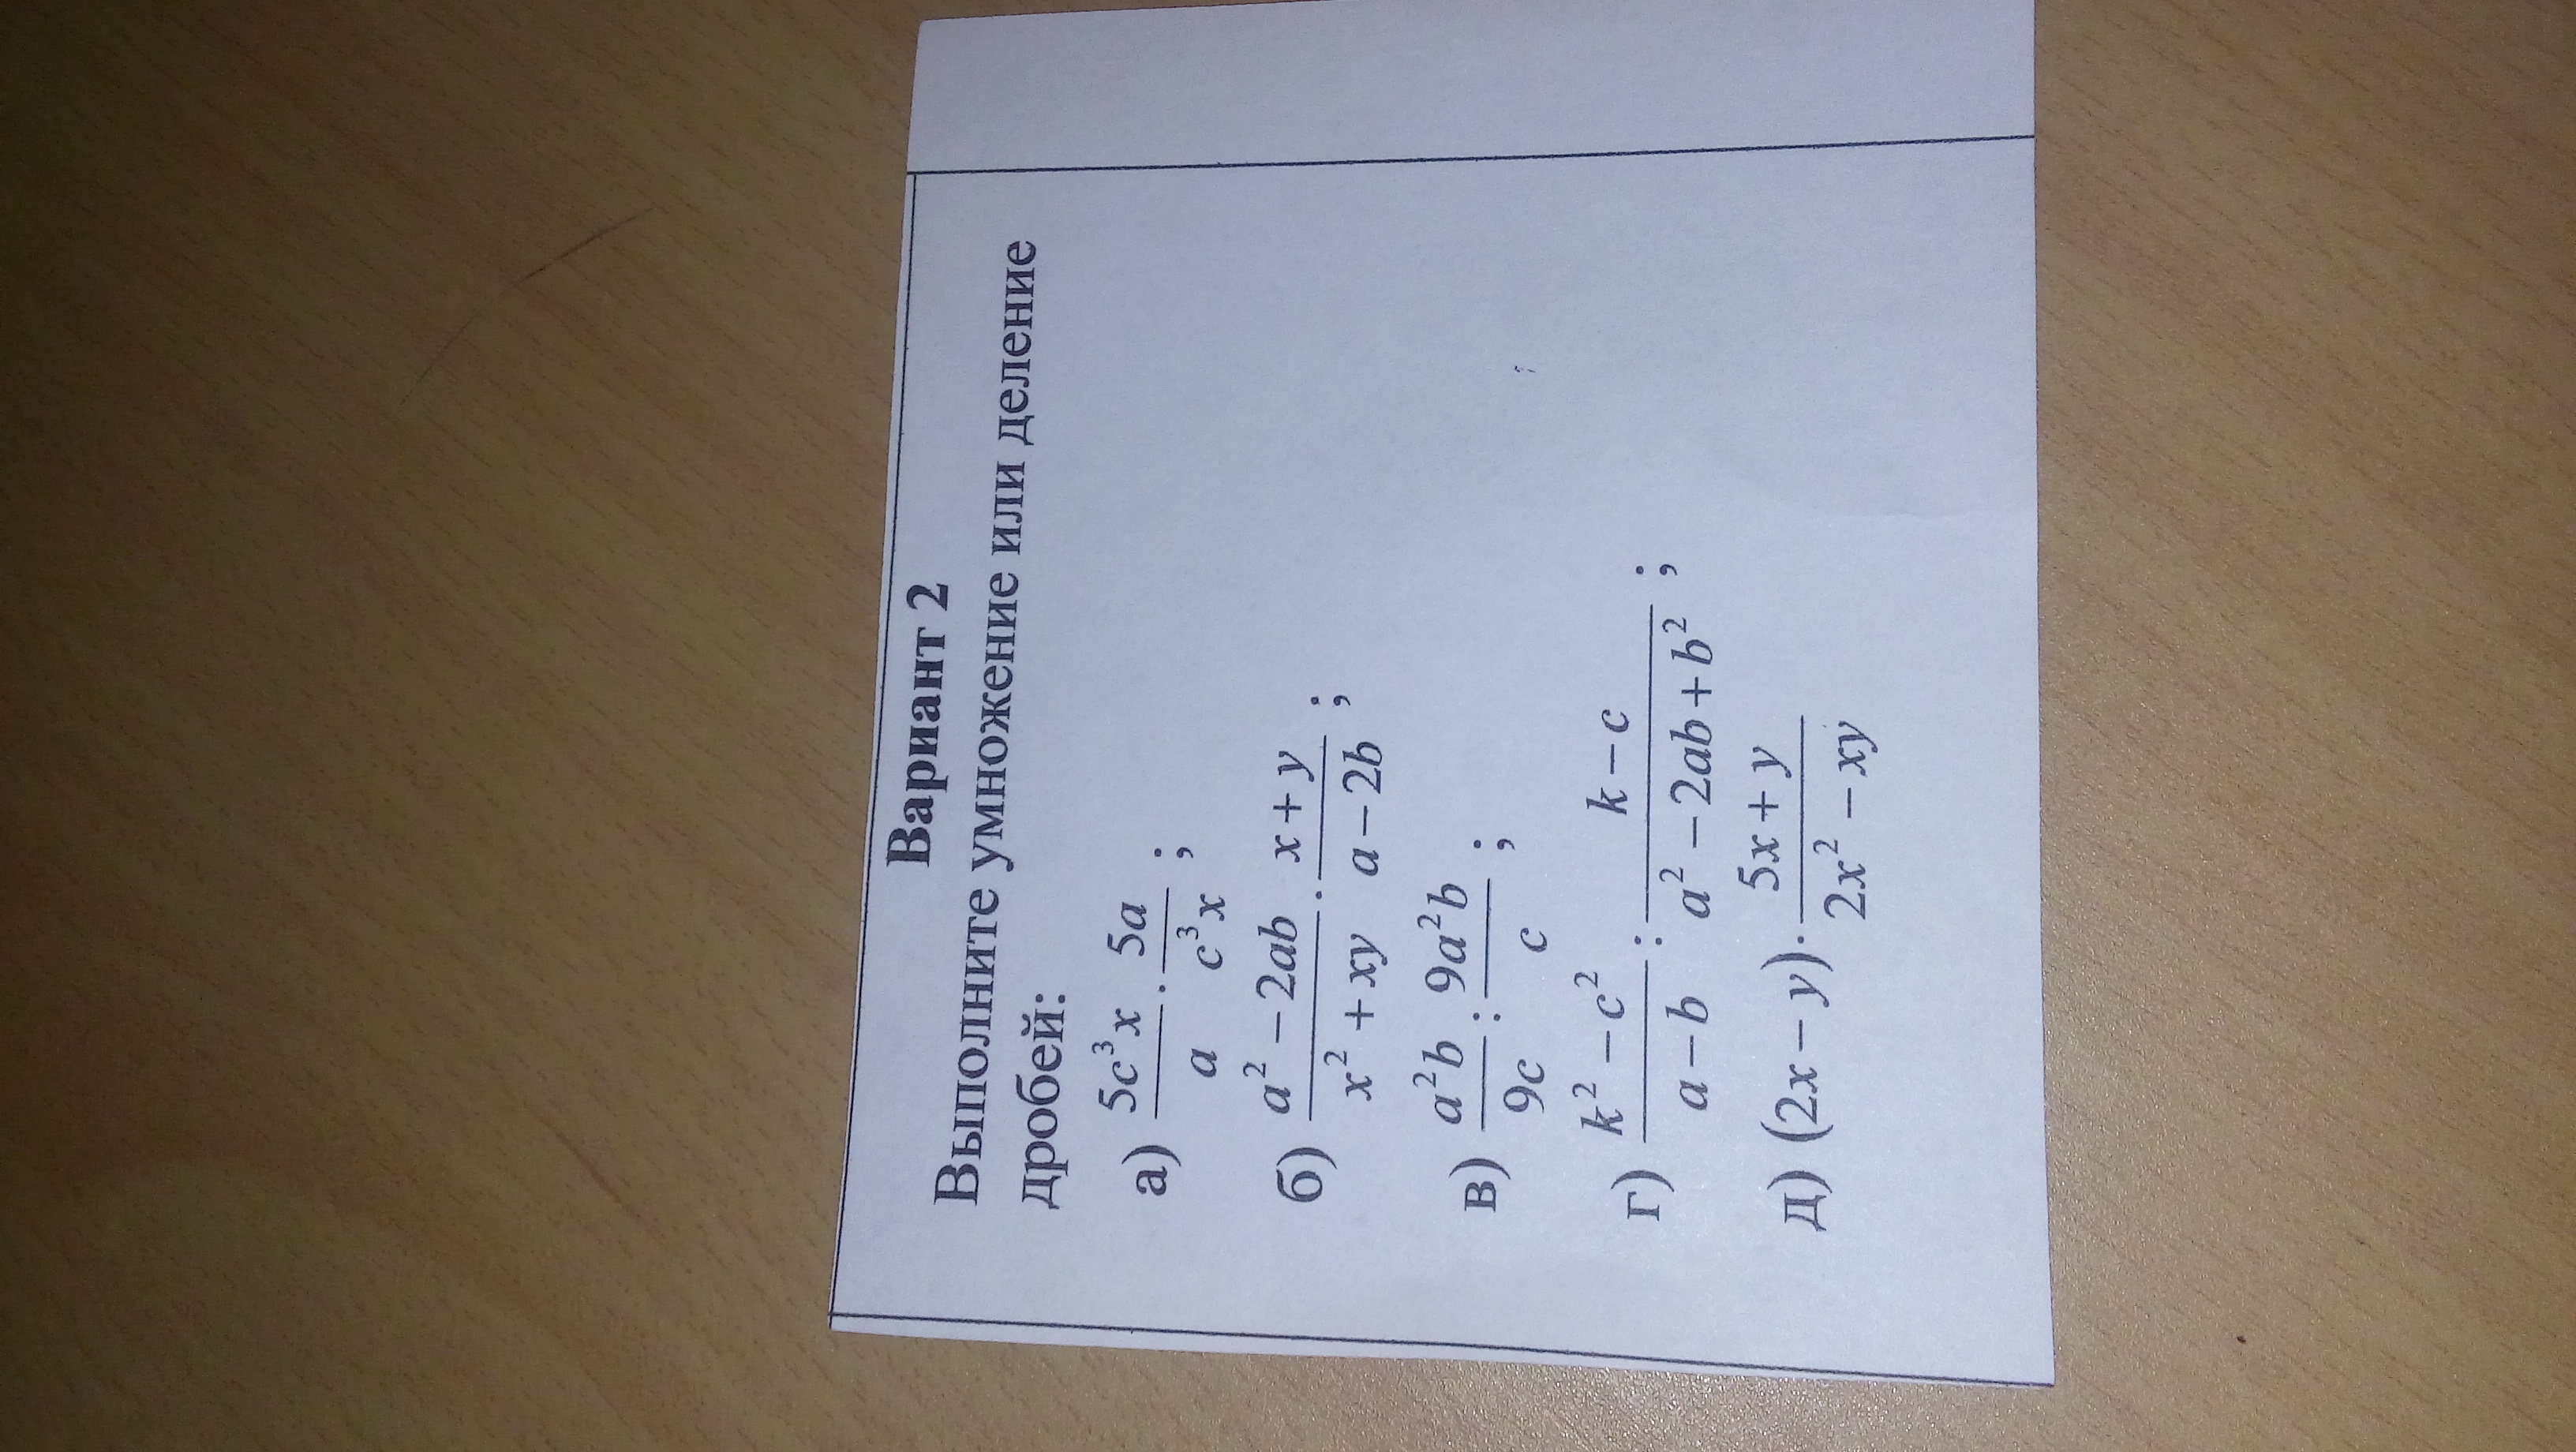 Вариант 2
Выполните умножение или деление
дробей:
а) \frac{5c^3x}{a} \cdot \frac{5a}{c^3x};
б) \frac{a^2-2ab}{x^2+xy} \cdot \frac{x+y}{a-2b};
в) \frac{a^2b}{9c} : \frac{9a^2b}{c};
г) \frac{k^2-c^2}{a-b} : \frac{k-c}{a^2-2ab+b^2};
д) (2x-y) \cdot \frac{5x+y}{2x^2-xy}